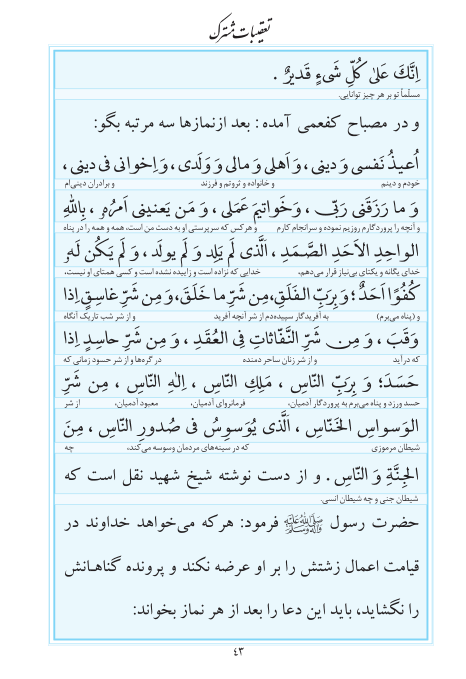 تعقیبات مشترک
اِنَّکَ عَلیٰ کُلِّ شَیءٍ قَدیرٌ .
مسلّماً تو بر هر چیز توانایی.
و در مصباح کفعمی آمده: بعد ازنمازها سه مرتبه بگو:
اُعیذُ نَفسی وَ دینی، وَ اَهلی وَ مالی وَ وَلَدی، وَ اِخوانی فی دینی،
خودم و دینم و خانواده و ثروتم و فرزند و برادران دینی‌ام
وَ ما رَزَقَنی رَبّی، وَ خَواتیمَ عَمَلی، وَ مَن یَعنینی اَمرُهُ، بِاللهِ
و آنچه را پروردگارم روزیم نموده و سرانجام کارم و هر کس که سرپرستی او به دست من است، همه و همه را در پناه
الواحِدِ الاَحَدِ الصَّمَدِ، اَلَّذی لَم یَلِد وَ لَم یولَد، وَ لَم یَکُن لَهُ
خدای یگانه و یکتای بی‌نیاز قرار می‌دهم، خدایی که نزاده است و زاییده نشده است و کسی همتای او نیست،
کُفُوًا اَحَدٌ؛ وَ بِرَبِّ الفَلَقِ، مِن شَرِّ ما خَلَقَ، وَ مِن شَرِّ غاسِقٍ اِذا
و (پناه می‌برم) به آفریدگار سپیده‌دم از شر آنچه آفرید و از شر شب تاریک آنگاه
وَقَبَ، وَ مِن شَرِّ النَّفّاثاتِ فِی العُقَدِ، وَ مِن شَرِّ حاسِدٍ اِذا
که درآید و از شر زنان ساحر دمنده در گره‌ها و از شر حسود زمانی که
حَسَدَ؛ وَ بِرَبِّ النّاسِ، مَلِکِ النّاسِ، اِلٰهِ النّاسِ، مِن شَرِّ
حسد ورزد و پناه می‌برم به پروردگار آدمیان، فرمانروای آدمیان، معبود آدمیان، از شر
الوَسواسِ الخَنّاسِ، اَلَّذی یُوَسوِسُ فی صُدورِ النّاسِ، مِنَ
شیطان مرموزی که در سینه‌های مردمان وسوسه می‌کند، چه
الجِنَّةِ وَ النّاسِ. و از دست نوشته شیخ شهید نقل است که
شیطان جنی و چه شیطان انسی.
حضرت رسول ﷺ فرمود: هرکه می‌خواهد خداوند در
قیامت اعمال زشتش را بر او عرضه نکند و پرونده گناهـانش
را نگشاید، باید این دعا را بعد از هر نماز بخواند:
۴۳